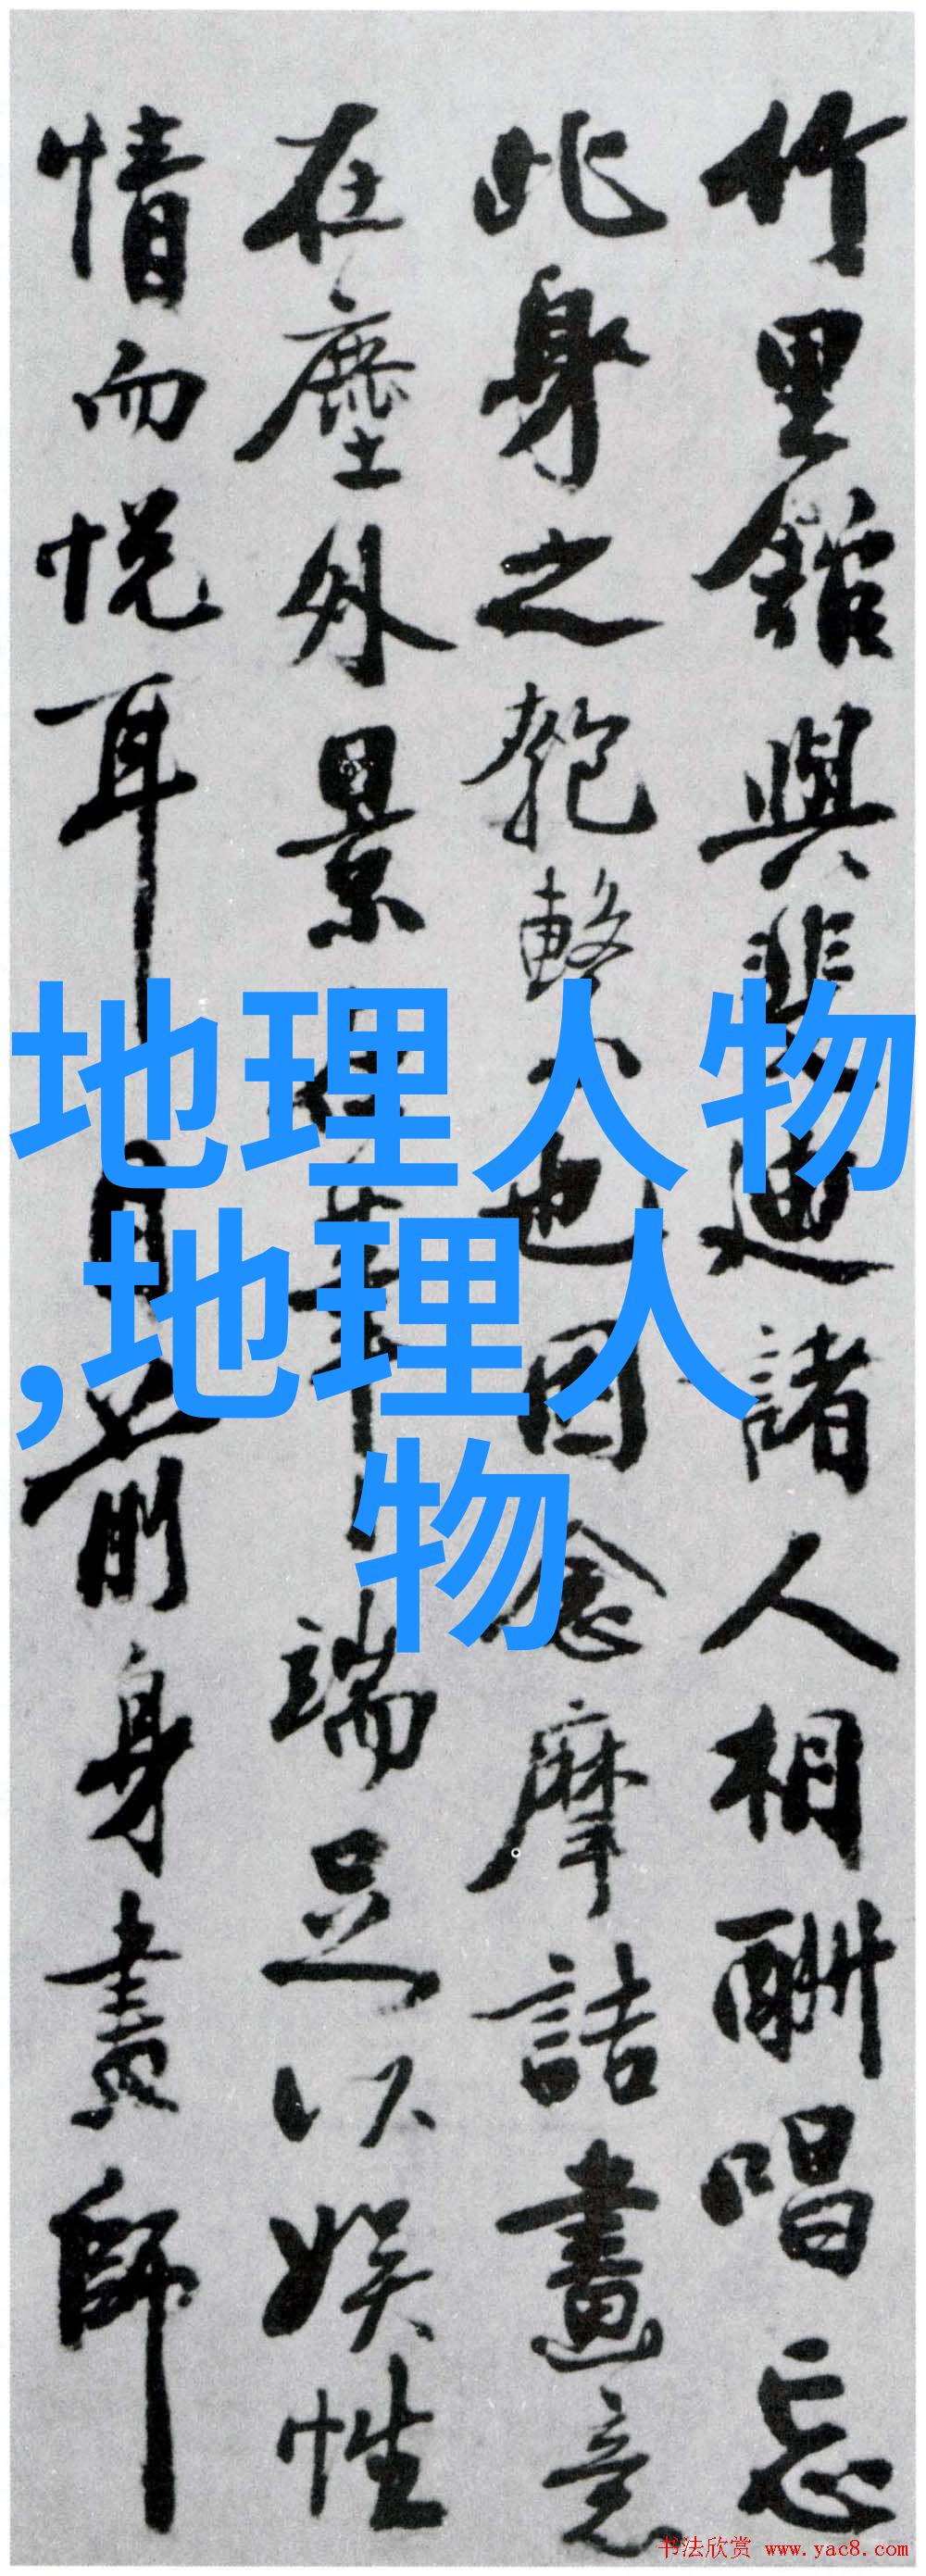 竹里館與裴迪諸人相酬唱忘
此身之匏繫也因念摩詰畫意
在塵外景筆端足以娱性
情而悦耳目前身畫師
地理人物
,地理人
物
书法欣赏 www.yac8.com